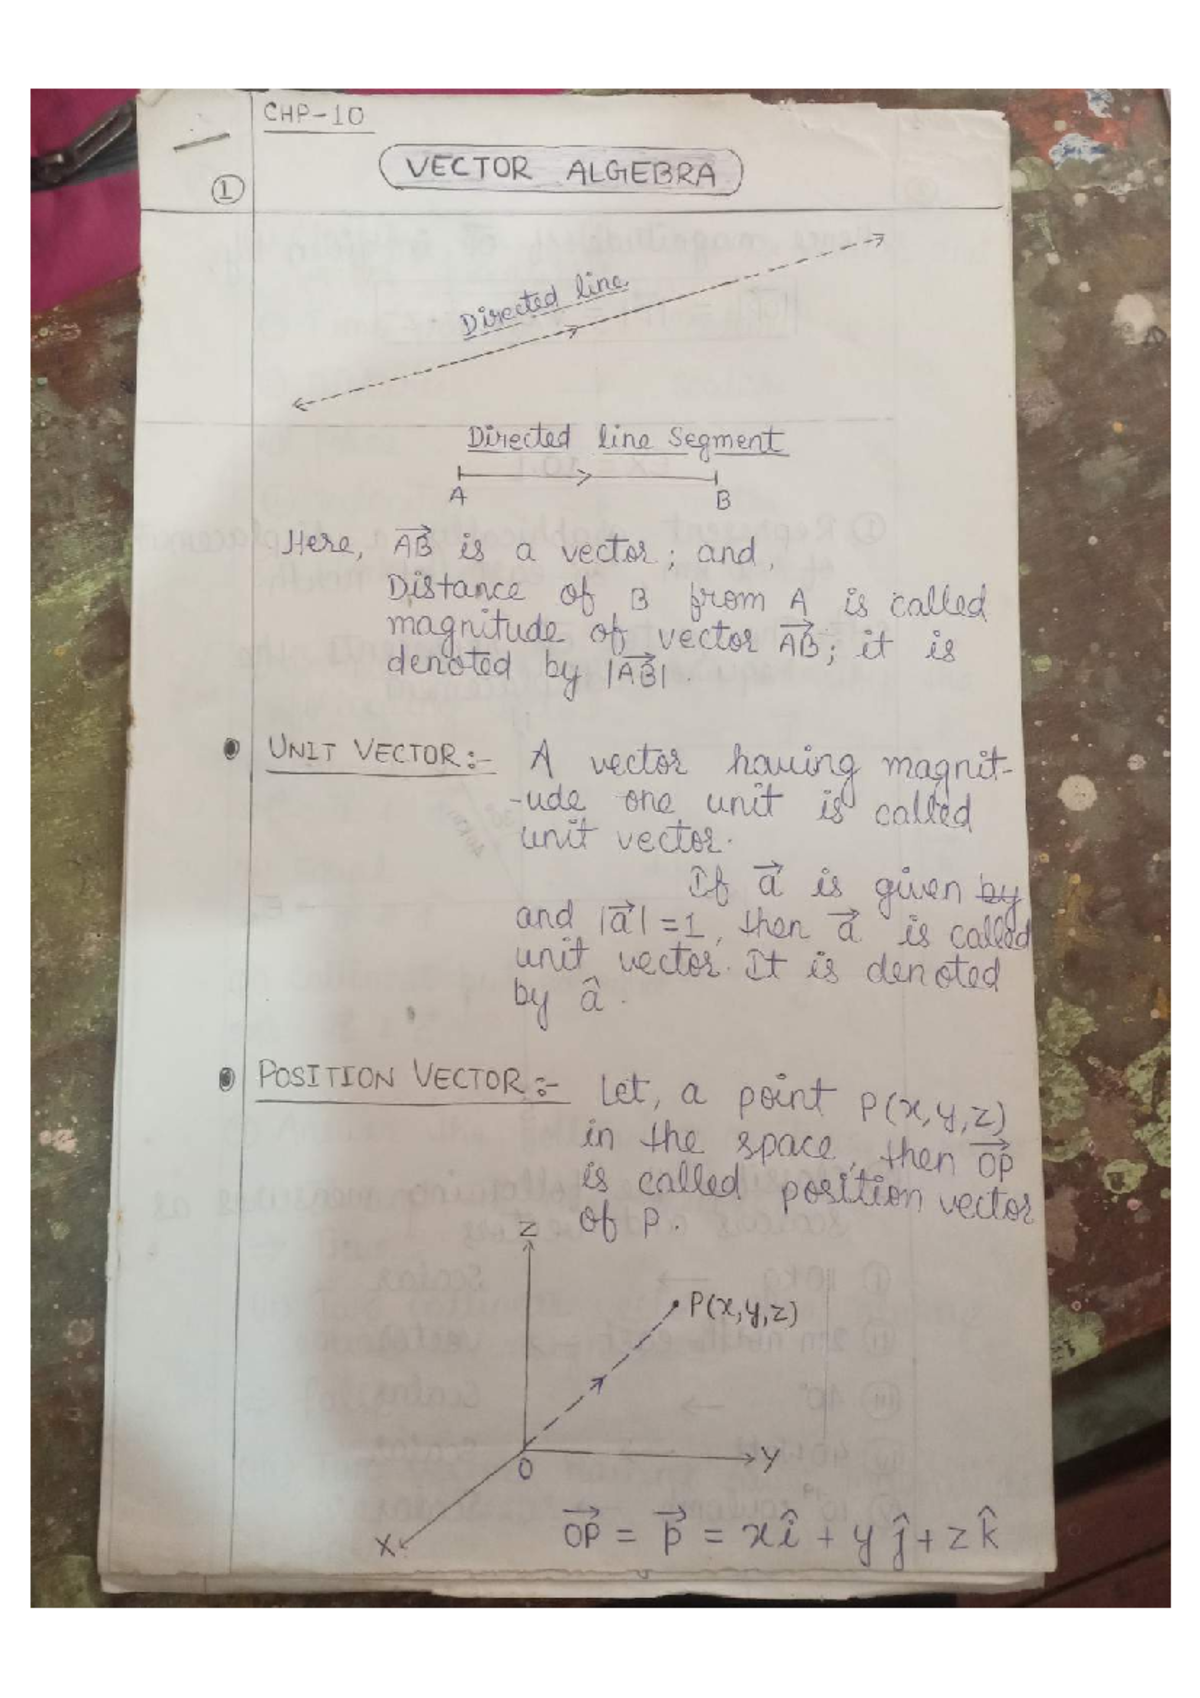 CHP-10
①
VECTOR ALGEBRA
Directed line
Directed line Segment
A B
Here, $\overrightarrow{AB}$ is a vector; and,
Distance of B from A is called
magnitude of vector $\overrightarrow{AB}$; it is
denoted by $|\overrightarrow{AB}|$.
• UNIT VECTOR:- A vector having magnit-
-ude one unit is called
unit vector.
If $\vec{a}$ is given ~~by~~
and $|\vec{a}|=1$, then $\vec{a}$ is called
unit vector. It is denoted
by $\hat{a}$.
• POSITION VECTOR:- Let, a point P(x,y,z)
in the space, then $\overrightarrow{OP}$
is called position vector
of P.
Z
P(x,y,z)
O
Y
X
$\overrightarrow{OP} = \vec{p} = x\hat{i} + y\hat{j} + z\hat{k}$